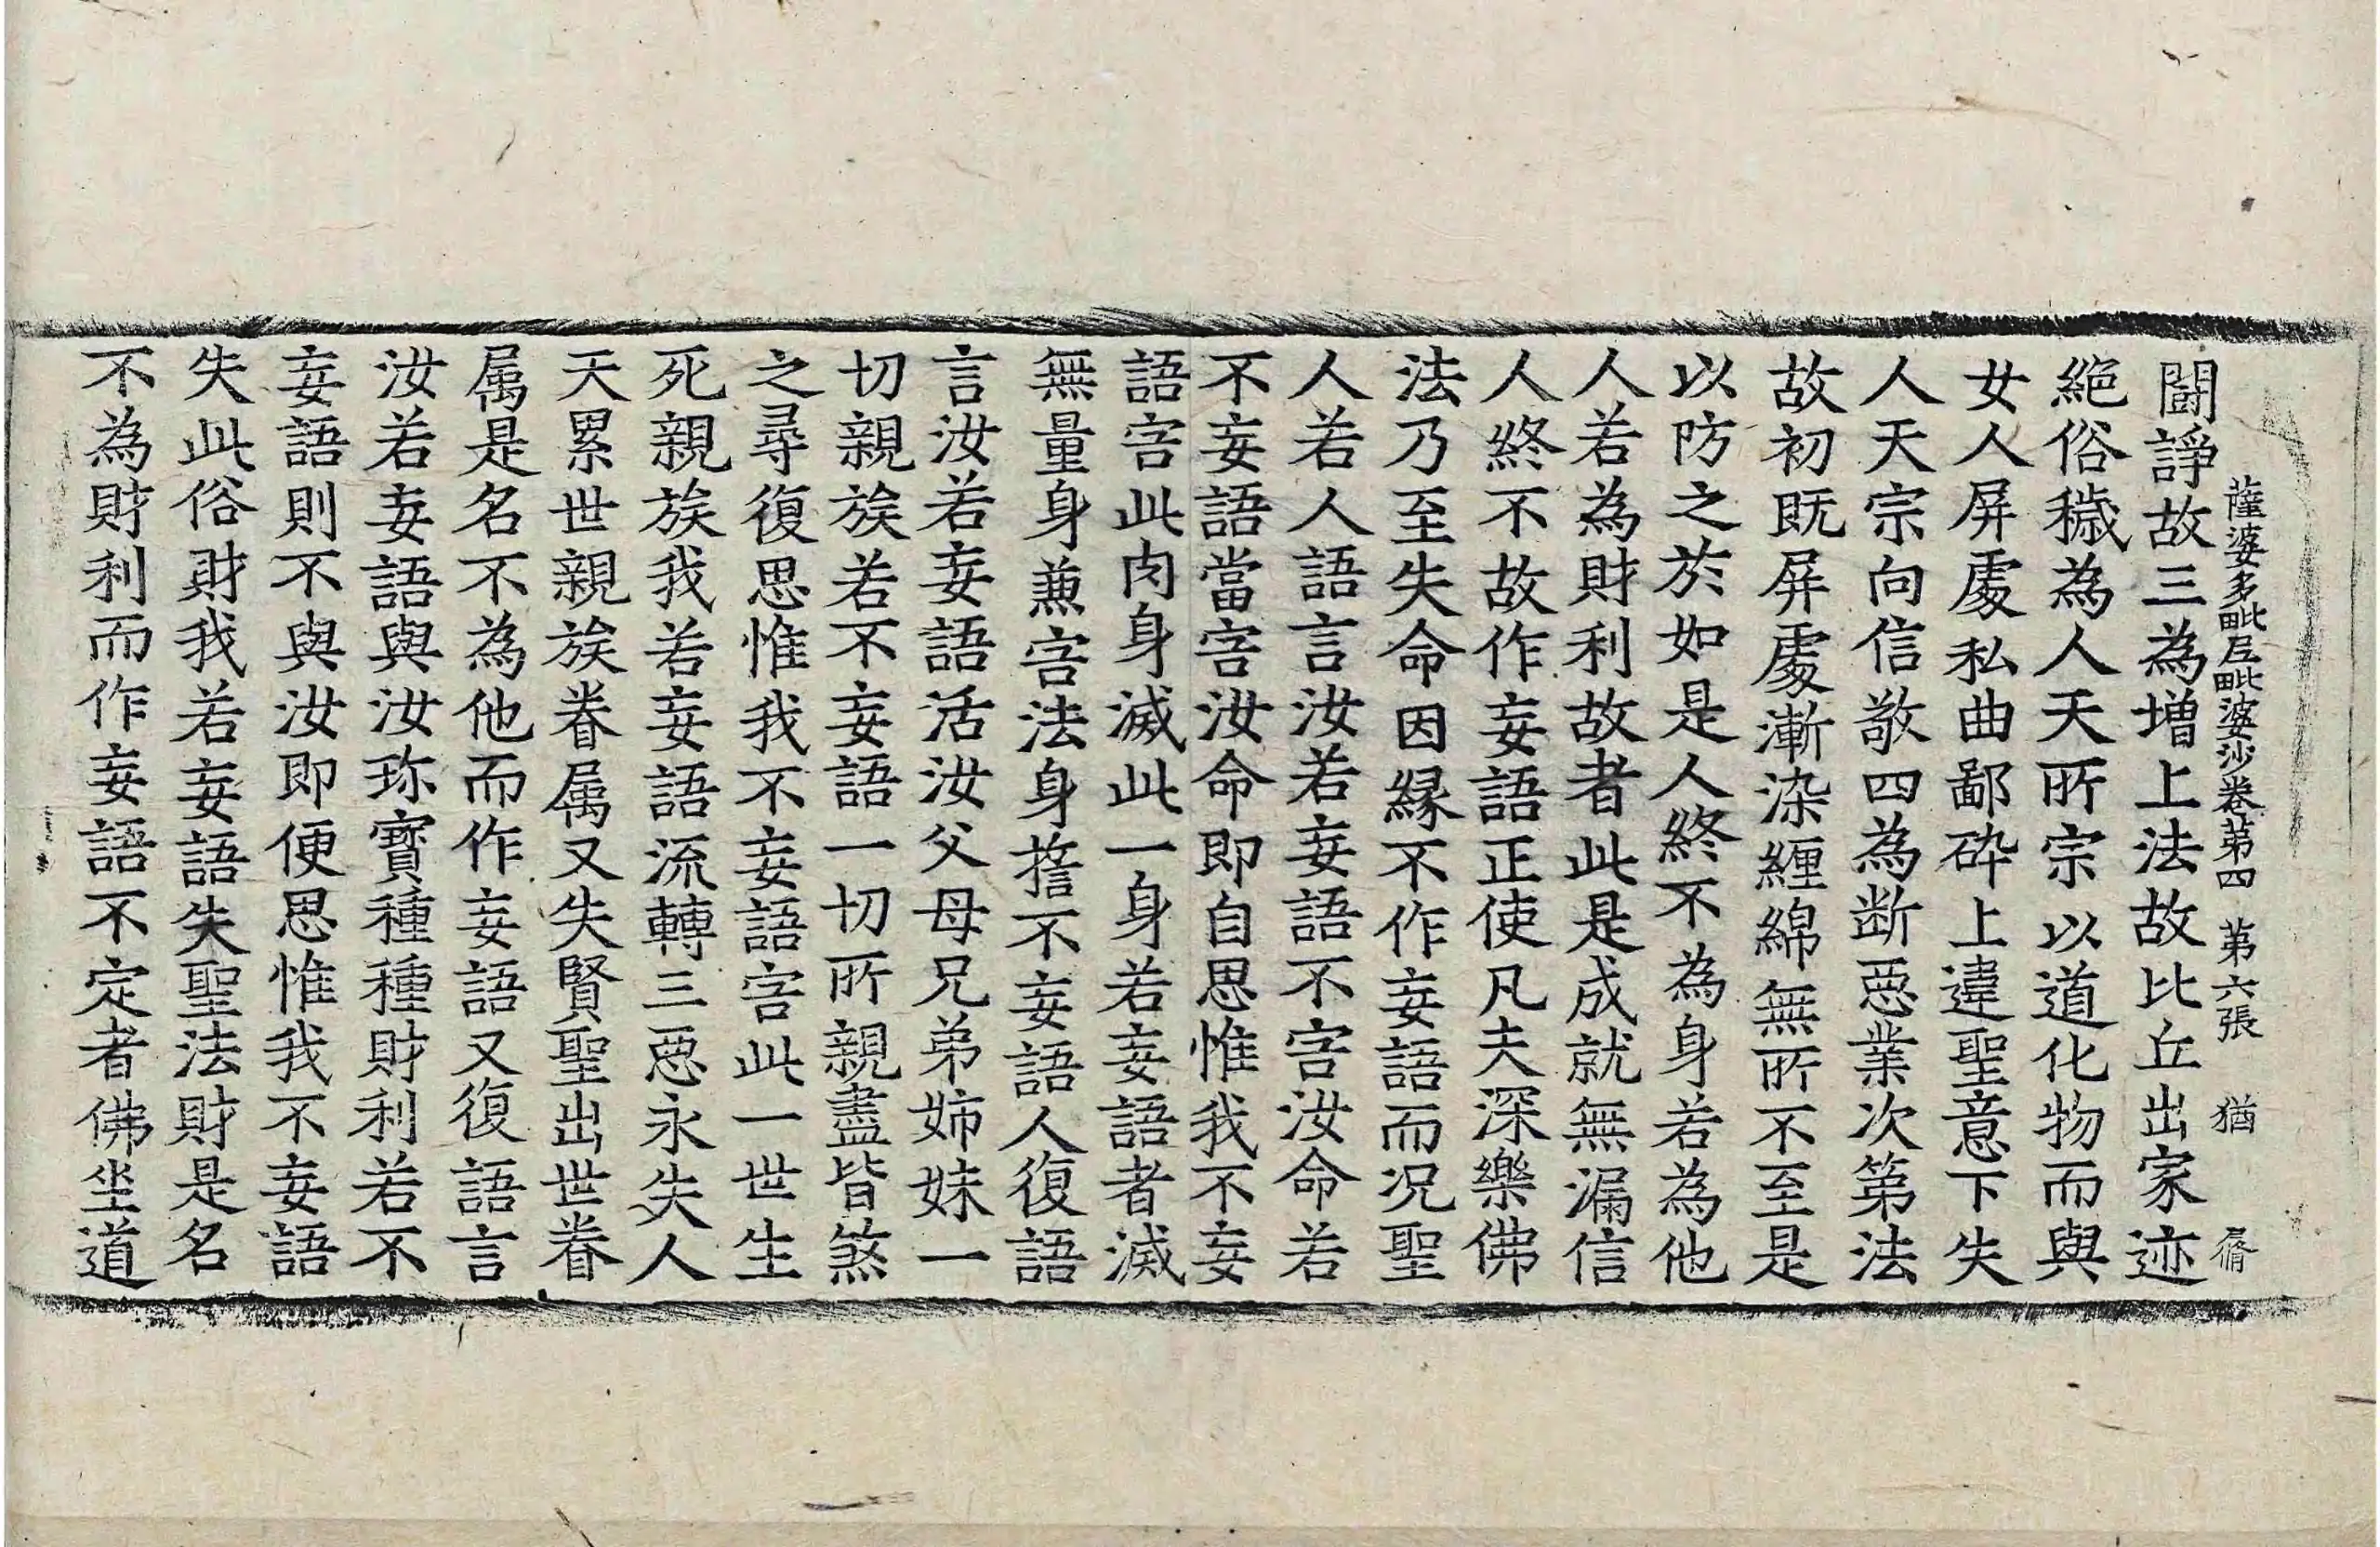 薩婆多毗尼毗婆沙卷第四 第六張 猶
鬪諍故三為增上法故比丘出家迹
絕俗穢為人天所宗以道化物而與
女人屏處私曲鄙碎上違聖意下失
人天宗向信敬四為断惡業次第法
故初既屏處漸染纏綿無所不至是
以防之於如是人終不為身若為他
人若為財利故者此是成就無漏信
人終不故作妄語正使凡夫深樂佛
法乃至失命因緣不作妄語而況聖
人若人語言汝若妄語不害汝命若
不妄語當害汝命即自思惟我不妄
語害此肉身滅此一身若妄語者滅
無量身兼害法身擔不妄語人復語
言汝若妄語活汝父母兄弟姉妹一
切親族若不妄語一切所親盡皆煞
之尋復思惟我不妄語害此一世生
死親族我若妄語流轉三惡永失人
天累世親族眷属又失賢聖出世眷
属是名不為他而作妄語又復語言
汝若妄語與汝珎寶種種財利若不
妄語則不與汝即便思惟我不妄語
失此俗財我若妄語失聖法財是名
不為財利而作妄語不定者佛坐道